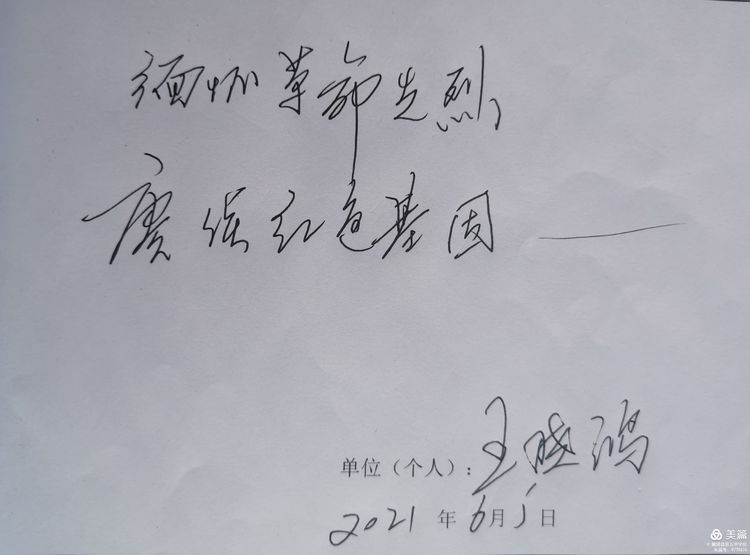 缅怀革命先烈
赓续红色基因——
单位（个人）：王晓鸿
2021 年 6 月 5 日
美篇